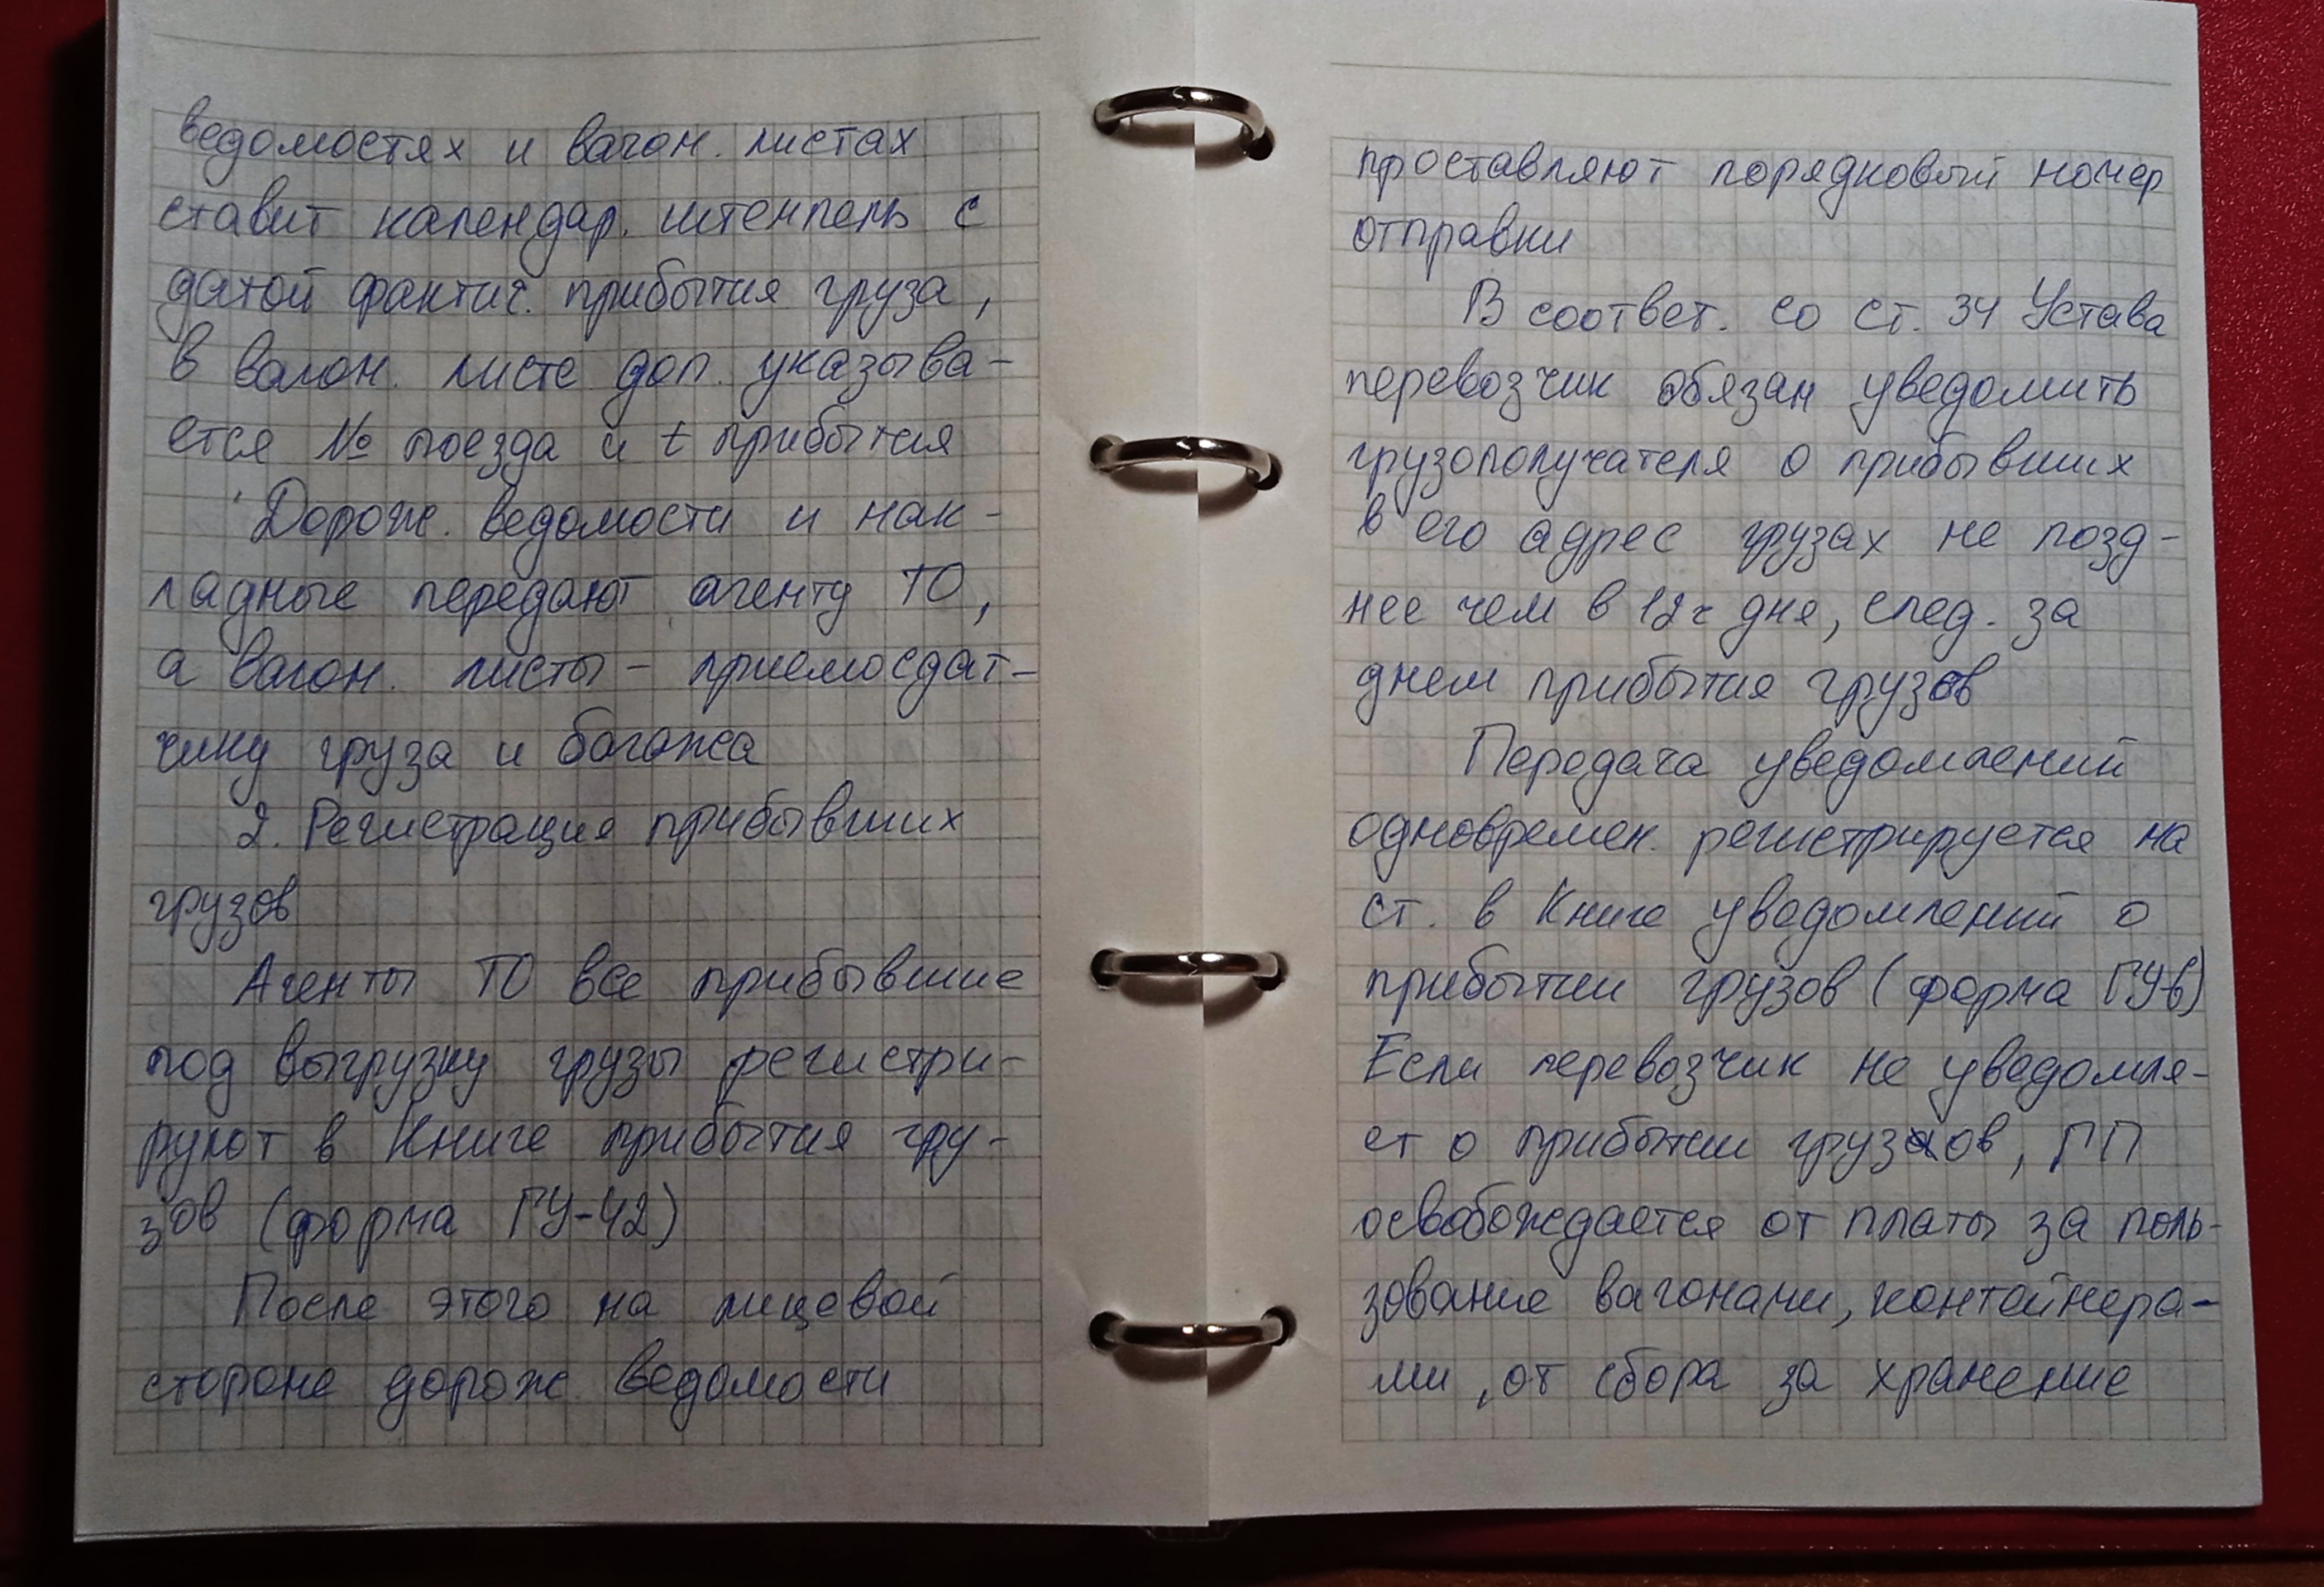 ведомостях и вагон. листах
ставит календар. штемпель с
датой фактич. прибытия груза,
в вагон. листе доп. указыва-
ется № поезда и t прибытия
Дорож. ведомости и нак-
ладные передают агенту ТО,
а вагон. листы - приемосдат-
чику груза и багажа
2. Регистрация прибывших
грузов
Агенты ТО все прибывшие
под выгрузку грузы регистри-
руют в Книге прибытия гру-
зов (форма ГУ-42)
После этого на лицевой
стороне дорож. ведомости
проставляют порядковый номер
отправки
В соответ. со ст. 34 Устава
перевозчик обязан уведомить
грузополучателя о прибывших
в его адрес грузах не позд-
нее чем в 12 ч дня, след. за
днем прибытия грузов
Передача уведомлений
одновремен. регистрируется на
ст. в Книге уведомлений о
прибытии грузов (форма ГУ-6)
Если перевозчик не уведомля-
ет о прибытии грузов, ГП
освобождается от платы за поль-
зование вагонами, контейнера-
ми, от сбора за хранение